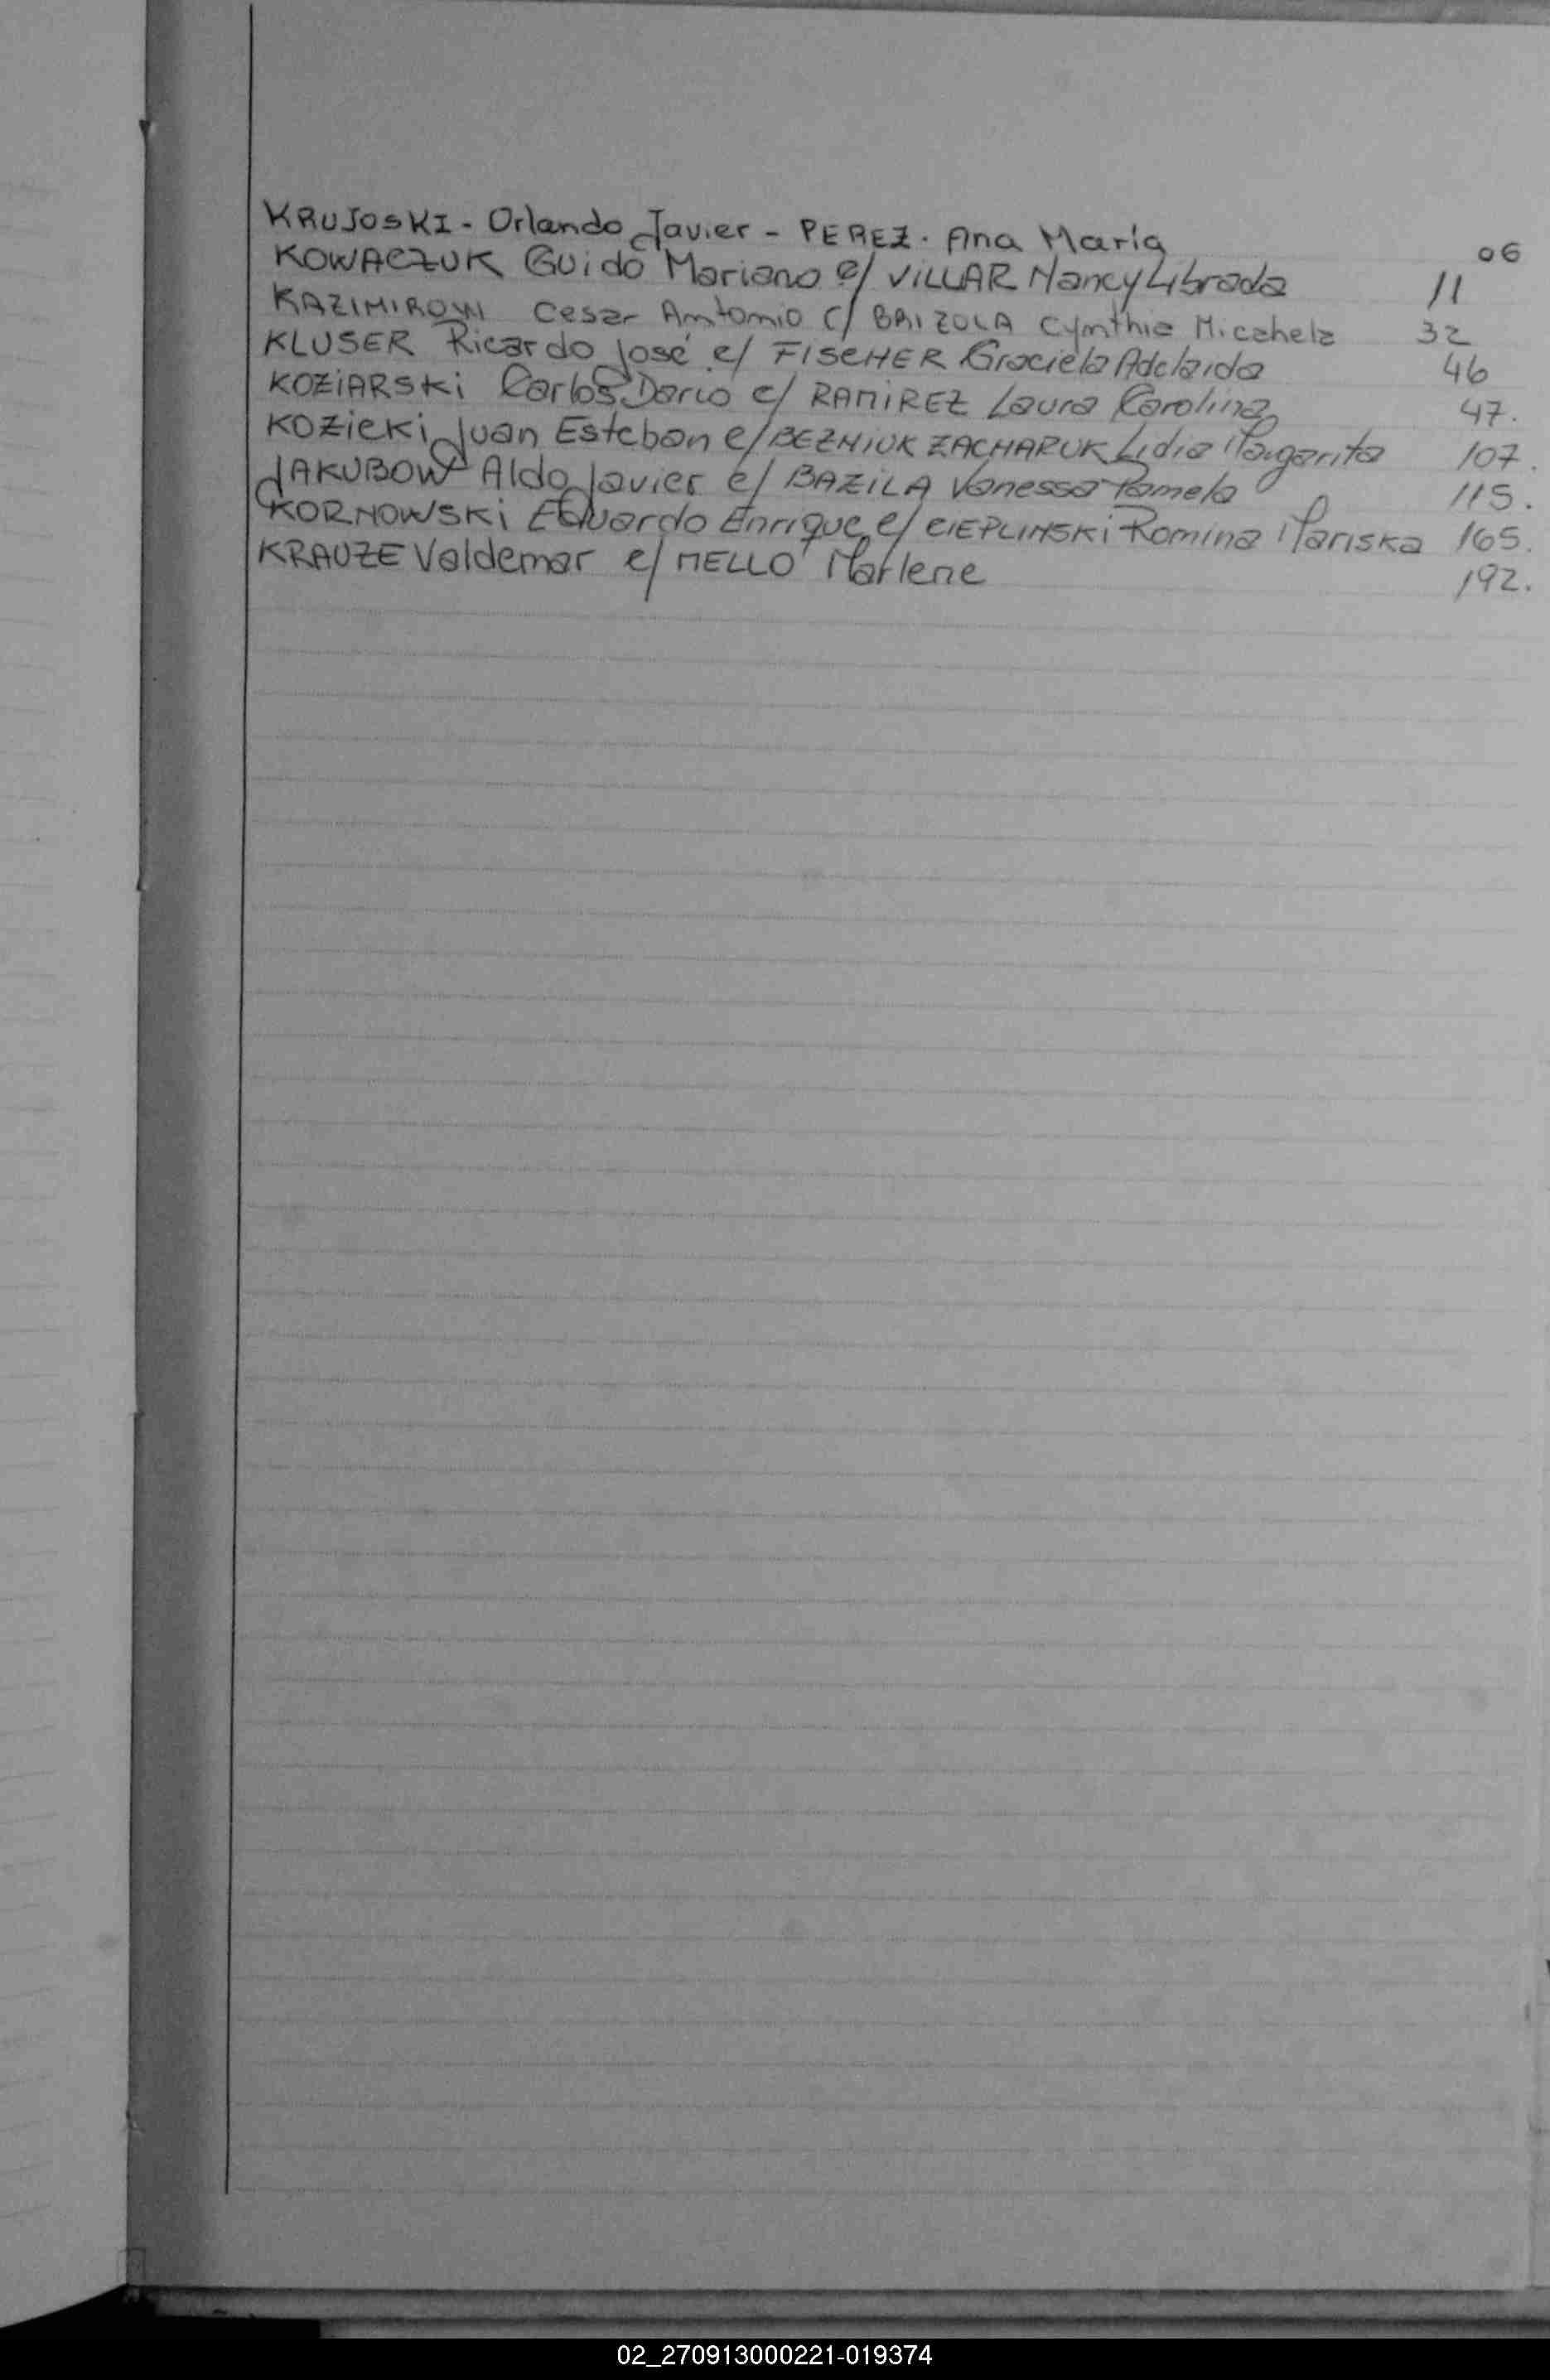 KRUJOSKI - Orlando Javier - PEREZ. Ana María 06
KOWACZUK Guido Mariano c/ VILLAR Nancy Librada 11
KAZIMIROWI Cesar Antonio c/ BRIZOLA Cynthia Micahela 32
KLUSER Ricardo José c/ FISCHER Graciela Adelaida 46
KOZIARSKI Carlos Dario c/ RAMIREZ Laura Carolina 47.
KOZICKI Juan Esteban c/ BEZNIUK ZACHARUK Lidia Margarita 107.
JAKUBOW Aldo Javier c/ BAZILA Vanessa Pamela 115.
KORNOWSKI Eduardo Enrique c/ CIEPLINSKI Romina Mariska 165.
KRAUZE Valdemar c/ MELLO Marlene 192.
02_270913000221-019374